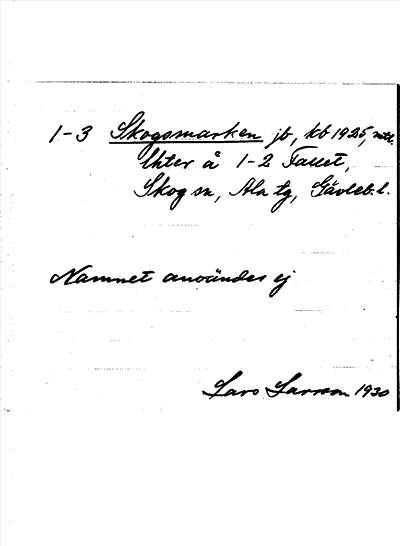 1-3 Skogsmarken jb, kb 1925, mtl.
lhter å 1-2 Fallet,
Skog sn, Ala tg, Gävleb. l.
Namnet användes ej
Lars Larsson 1930